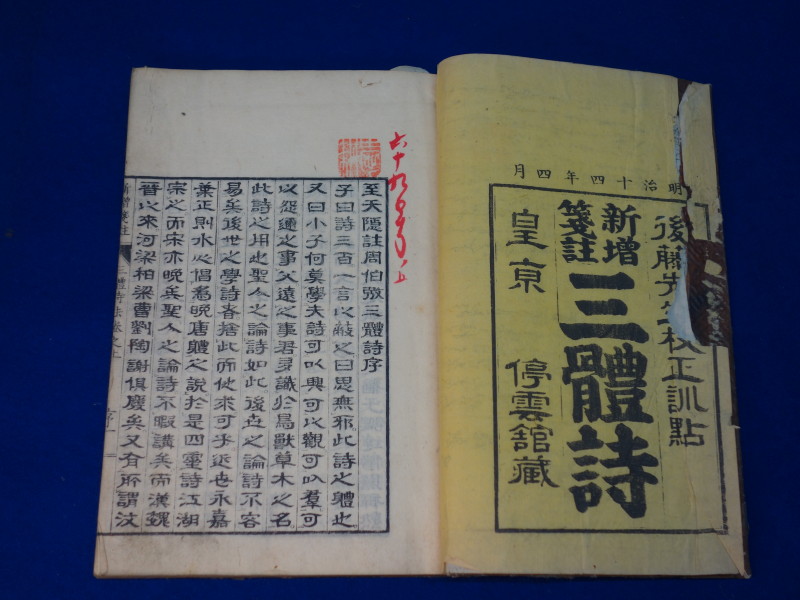 明治十四年四月
後藤芝校正訓點
新增
箋註
三體詩
皇京 停雲舘藏
至天隱註周伯弜三體詩序
子曰詩三百一言以蔽之曰思無邪此詩之體也
又曰小子何莫學夫詩可以興可以觀可以羣可
以怨邇之事父遠之事君多識於鳥獸草木之名
此詩之用也聖人之論詩如此後世之論詩不容
易矣後世之學詩者捨此而他求可乎近世永嘉
葉正則水心倡爲晚唐體之說於是四靈詩江湖
宗之而宋亦晚矣聖人之論詩不暇講矣而漢魏
晉以來河梁柏梁曹劉陶謝俱廢矣又有所謂汶
三體詩法卷之上 序 一
六十九